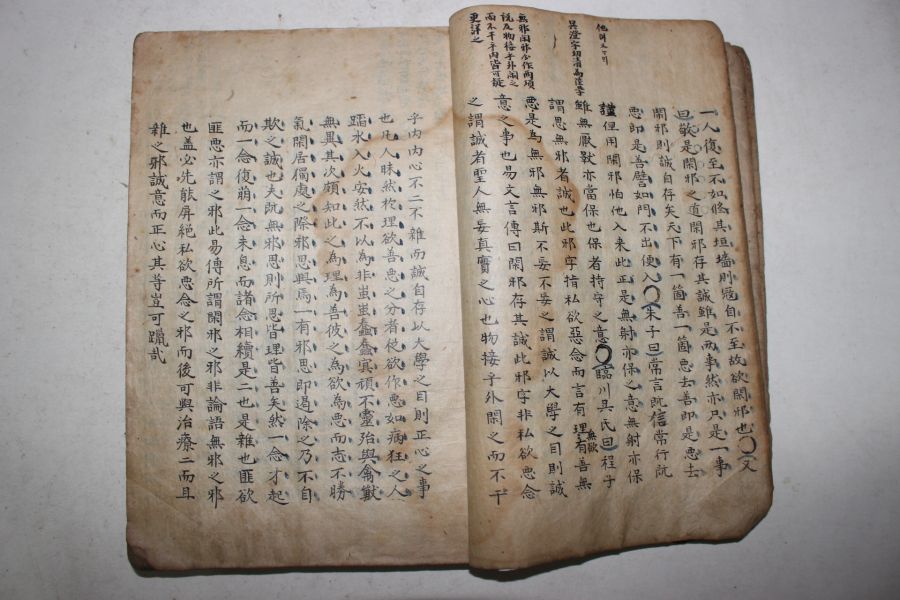 他
吳澄字幼淸爲
無邪閑邪分作兩項
說及物接乎外閑之
而不干乎內皆可疑
更詳之
一人復至不如修其垣墻則寇自不至故欲閑邪也○又
曰敬是閑邪之道閑邪存其誠雖是兩事然亦只是一事
閑邪則誠自存矣天下有一箇善一箇惡去善卽是惡去
惡卽是善譬如門不出便入○朱子曰常言旣信常行旣
謹但用閑邪怕他入來此正是無射亦保之意無射亦保
雖無厭斁亦當保也保者持守之意○臨川吳氏曰程子
謂思無邪者誠也此邪字指私欲惡念而言有理無欲有善無
惡是爲無邪無邪斯不妄不妄之謂誠以大學之目則誠
意之事也易文言傳曰閑邪存其誠此邪字非私欲惡念
之謂誠者聖人無妄眞實之心也物接乎外閑之而不干
乎內內心不二不雜而誠自存以大學之目則正心之事
也凡人昧然於理欲善惡之分者從欲作惡如病狂之人
蹈水入火安然不以爲非蚩蚩蠢蠢冥頑不靈殆與禽獸
無異其次頗知此之爲理爲善彼之爲欲爲惡而志不勝
氣閑居獨處之際邪思興焉一有邪思卽遏除之乃不自
欺之誠也夫旣無邪思則所思皆理皆善矣然一念才起
而一念復萌一念未息而諸念相續是二也是雜也匪欲
匪惡亦謂之邪此易傳所謂閑邪之邪非論語無邪之邪
也蓋必先能屛絶私欲惡念之邪而後可與治療二而且
雜之邪誠意而正心其等豈可躐哉